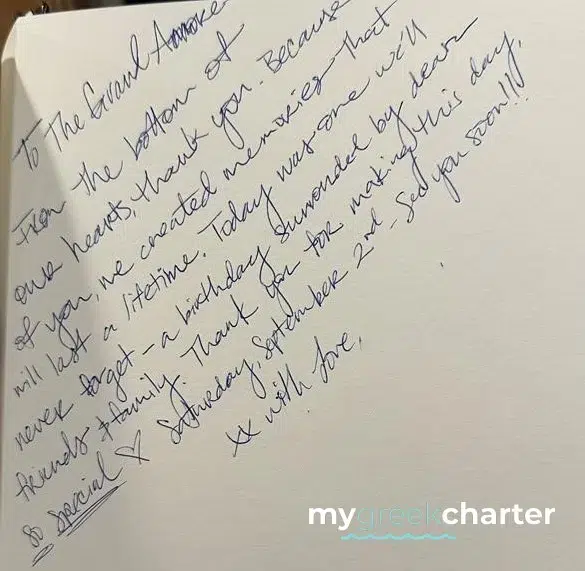 To The Grand
From the bottom of
our hearts, thank you. Because
of you, we created memories that
will last a lifetime. Today was one we'll
never forget - a birthday surrounded by dear
friends & family. Thank you for making this day,
so special ♡ Saturday, September 2nd - See you soon!!
xx with love,
mygreekcharter